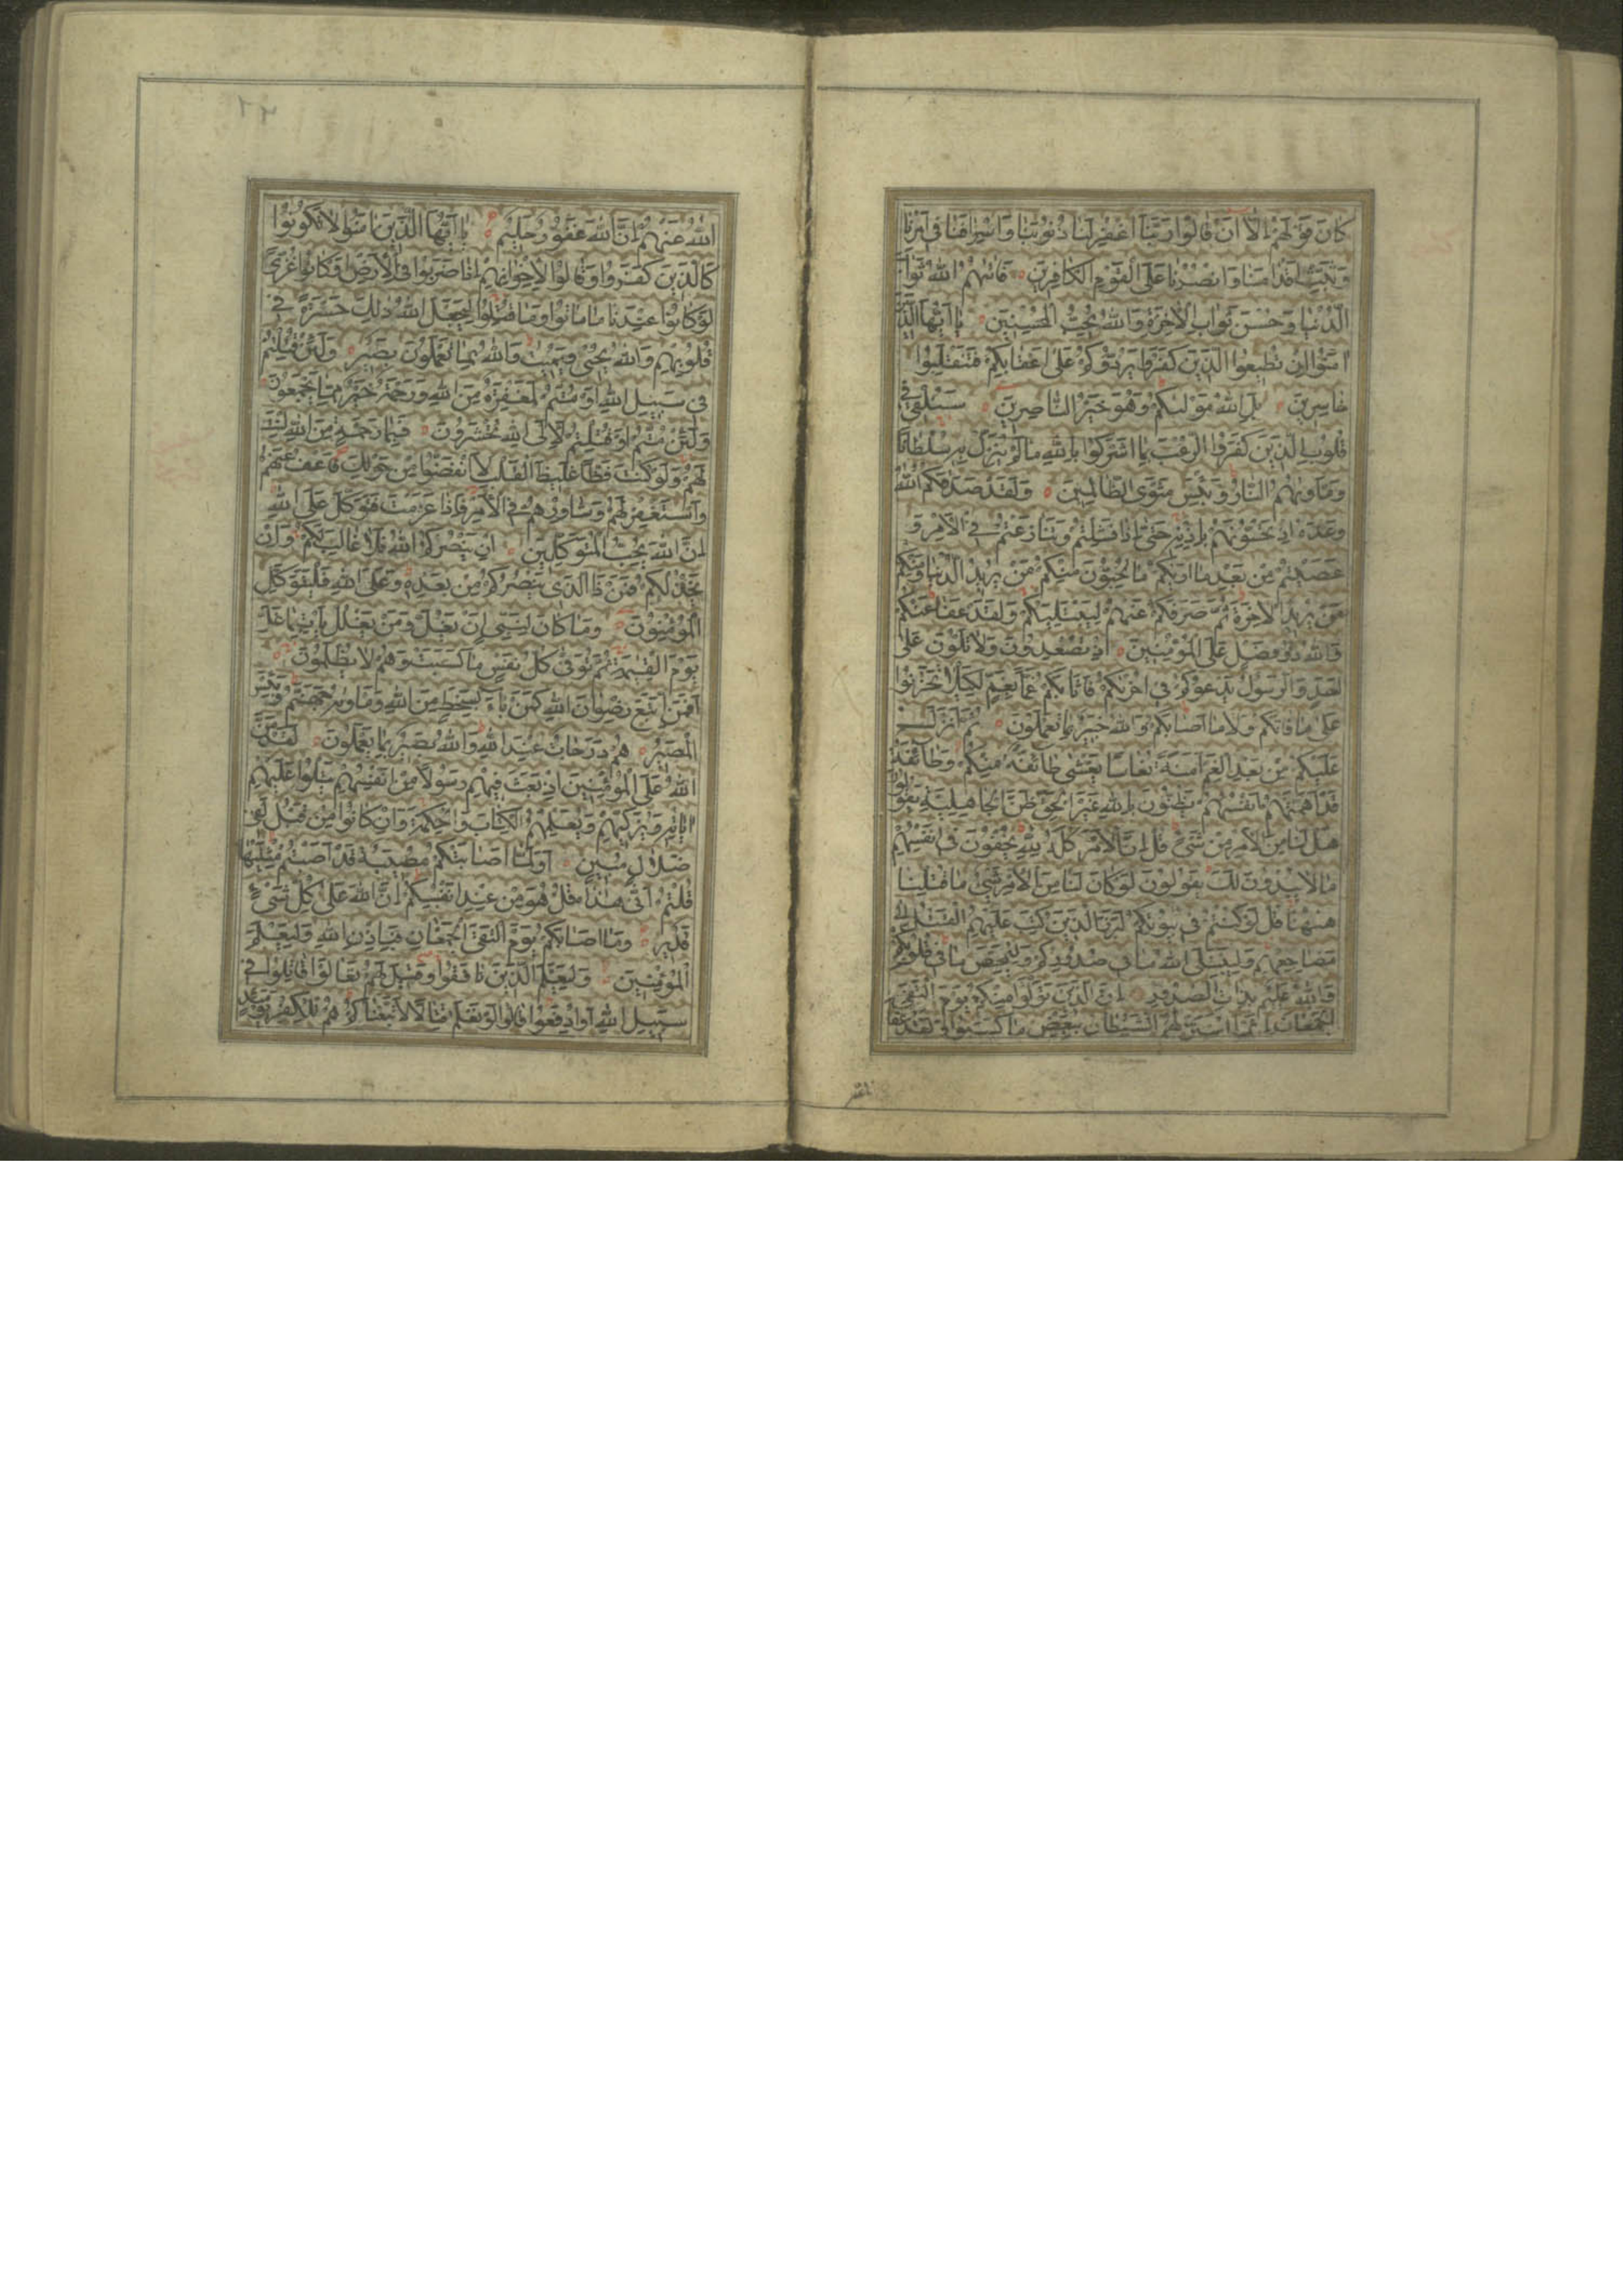 كَانَ قَوْلَهُمْ اِلَّا اَنْ قَالُوا رَبَّنَا اغْفِرْ لَنَا ذُنُوبَنَا وَاِسْرَافَنَا فِى اَمْرِنَا
وَثَبِّتْ اَقْدَامَنَا وَانْصُرْنَا عَلَى الْقَوْمِ الْكَافِرِينَ فَاٰتٰيهُمُ اللّٰهُ ثَوَابَ
الدُّنْيَا وَحُسْنَ ثَوَابِ الْاٰخِرَةِ وَاللّٰهُ يُحِبُّ الْمُحْسِنِينَ يَا اَيُّهَا الَّذِينَ
اٰمَنُوا اِنْ تُطِيعُوا الَّذِينَ كَفَرُوا يَرُدُّوكُمْ عَلَى اَعْقَابِكُمْ فَتَنْقَلِبُوا
خَاسِرِينَ بَلِ اللّٰهُ مَوْلٰيكُمْ وَهُوَ خَيْرُ النَّاصِرِينَ سَنُلْقِى فِى
قُلُوبِ الَّذِينَ كَفَرُوا الرُّعْبَ بِمَا اَشْرَكُوا بِاللّٰهِ مَا لَمْ يُنَزِّلْ بِهِ سُلْطَانًا
وَمَاْوٰيهُمُ النَّارُ وَبِئْسَ مَثْوَى الظَّالِمِينَ وَلَقَدْ صَدَقَكُمُ اللّٰهُ
وَعْدَهُ اِذْ تَحُسُّونَهُمْ بِاِذْنِهِ حَتّٰى اِذَا فَشِلْتُمْ وَتَنَازَعْتُمْ فِى الْاَمْرِ وَ
عَصَيْتُمْ مِنْ بَعْدِ مَا اَرٰيكُمْ مَا تُحِبُّونَ مِنْكُمْ مَنْ يُرِيدُ الدُّنْيَا وَمِنْكُمْ
مَنْ يُرِيدُ الْاٰخِرَةَ ثُمَّ صَرَفَكُمْ عَنْهُمْ لِيَبْتَلِيَكُمْ وَلَقَدْ عَفَا عَنْكُمْ
وَاللّٰهُ ذُو فَضْلٍ عَلَى الْمُؤْمِنِينَ اِذْ تُصْعِدُونَ وَلَا تَلْوُنَ عَلَى
اَحَدٍ وَالرَّسُولُ يَدْعُوكُمْ فِى اُخْرٰيكُمْ فَاَثَابَكُمْ غَمًّا بِغَمٍّ لِكَيْلَا تَحْزَنُوا
عَلَى مَا فَاتَكُمْ وَلَا مَا اَصَابَكُمْ وَاللّٰهُ خَبِيرٌ بِمَا تَعْمَلُونَ ثُمَّ اَنْزَلَ
عَلَيْكُمْ مِنْ بَعْدِ الْغَمِّ اَمَنَةً نُعَاسًا يَغْشٰى طَائِفَةً مِنْكُمْ وَطَائِفَةٌ
قَدْ اَهَمَّتْهُمْ اَنْفُسُهُمْ يَظُنُّونَ بِاللّٰهِ غَيْرَ الْحَقِّ ظَنَّ الْجَاهِلِيَّةِ يَقُولُونَ
هَلْ لَنَا مِنَ الْاَمْرِ مِنْ شَىْءٍ قُلْ اِنَّ الْاَمْرَ كُلَّهُ لِلّٰهِ يُخْفُونَ فِى اَنْفُسِهِمْ
مَا لَا يُبْدُونَ لَكَ يَقُولُونَ لَوْ كَانَ لَنَا مِنَ الْاَمْرِ شَىْءٌ مَا قُتِلْنَا
هٰهُنَا قُلْ لَوْ كُنْتُمْ فِى بُيُوتِكُمْ لَبَرَزَ الَّذِينَ كُتِبَ عَلَيْهِمُ الْقَتْلُ اِلٰى
مَضَاجِعِهِمْ وَلِيَبْتَلِىَ اللّٰهُ مَا فِى صُدُورِكُمْ وَلِيُمَحِّصَ مَا فِى قُلُوبِكُمْ
وَاللّٰهُ عَلِيمٌ بِذَاتِ الصُّدُورِ اِنَّ الَّذِينَ تَوَلَّوْا مِنْكُمْ يَوْمَ الْتَقَى
الْجَمْعَانِ اِنَّمَا اسْتَزَلَّهُمُ الشَّيْطَانُ بِبَعْضِ مَا كَسَبُوا وَلَقَدْ عَفَا
٢٢
اللّٰهُ عَنْهُمْ اِنَّ اللّٰهَ غَفُورٌ حَلِيمٌ يَا اَيُّهَا الَّذِينَ اٰمَنُوا لَا تَكُونُوا
كَالَّذِينَ كَفَرُوا وَقَالُوا لِاِخْوَانِهِمْ اِذَا ضَرَبُوا فِى الْاَرْضِ اَوْ كَانُوا غُزًّى
لَوْ كَانُوا عِنْدَنَا مَا مَاتُوا وَمَا قُتِلُوا لِيَجْعَلَ اللّٰهُ ذٰلِكَ حَسْرَةً فِى
قُلُوبِهِمْ وَاللّٰهُ يُحْيِى وَيُمِيتُ وَاللّٰهُ بِمَا تَعْمَلُونَ بَصِيرٌ وَلَئِنْ قُتِلْتُمْ
فِى سَبِيلِ اللّٰهِ اَوْ مُتُّمْ لَمَغْفِرَةٌ مِنَ اللّٰهِ وَرَحْمَةٌ خَيْرٌ مِمَّا يَجْمَعُونَ
وَلَئِنْ مُتُّمْ اَوْ قُتِلْتُمْ لَاِلَى اللّٰهِ تُحْشَرُونَ فَبِمَا رَحْمَةٍ مِنَ اللّٰهِ لِنْتَ
لَهُمْ وَلَوْ كُنْتَ فَظًّا غَلِيظَ الْقَلْبِ لَانْفَضُّوا مِنْ حَوْلِكَ فَاعْفُ عَنْهُمْ
وَاسْتَغْفِرْ لَهُمْ وَشَاوِرْهُمْ فِى الْاَمْرِ فَاِذَا عَزَمْتَ فَتَوَكَّلْ عَلَى اللّٰهِ
اِنَّ اللّٰهَ يُحِبُّ الْمُتَوَكِّلِينَ اِنْ يَنْصُرْكُمُ اللّٰهُ فَلَا غَالِبَ لَكُمْ وَاِنْ
يَخْذُلْكُمْ فَمَنْ ذَا الَّذِى يَنْصُرُكُمْ مِنْ بَعْدِهِ وَعَلَى اللّٰهِ فَلْيَتَوَكَّلِ
الْمُؤْمِنُونَ وَمَا كَانَ لِنَبِىٍّ اَنْ يَغُلَّ وَمَنْ يَغْلُلْ يَاْتِ بِمَا غَلَّ
يَوْمَ الْقِيٰمَةِ ثُمَّ تُوَفّٰى كُلُّ نَفْسٍ مَا كَسَبَتْ وَهُمْ لَا يُظْلَمُونَ
اَفَمَنِ اتَّبَعَ رِضْوَانَ اللّٰهِ كَمَنْ بَاءَ بِسَخَطٍ مِنَ اللّٰهِ وَمَاْوٰيهُ جَهَنَّمُ وَبِئْسَ
الْمَصِيرُ هُمْ دَرَجَاتٌ عِنْدَ اللّٰهِ وَاللّٰهُ بَصِيرٌ بِمَا يَعْمَلُونَ لَقَدْ مَنَّ
اللّٰهُ عَلَى الْمُؤْمِنِينَ اِذْ بَعَثَ فِيهِمْ رَسُولًا مِنْ اَنْفُسِهِمْ يَتْلُوا عَلَيْهِمْ
اٰيَاتِهِ وَيُزَكِّيهِمْ وَيُعَلِّمُهُمُ الْكِتَابَ وَالْحِكْمَةَ وَاِنْ كَانُوا مِنْ قَبْلُ لَفِى
ضَلَالٍ مُبِينٍ اَوَلَمَّا اَصَابَتْكُمْ مُصِيبَةٌ قَدْ اَصَبْتُمْ مِثْلَيْهَا
قُلْتُمْ اَنّٰى هٰذَا قُلْ هُوَ مِنْ عِنْدِ اَنْفُسِكُمْ اِنَّ اللّٰهَ عَلٰى كُلِّ شَىْءٍ
قَدِيرٌ وَمَا اَصَابَكُمْ يَوْمَ الْتَقَى الْجَمْعَانِ فَبِاِذْنِ اللّٰهِ وَلِيَعْلَمَ
الْمُؤْمِنِينَ وَلِيَعْلَمَ الَّذِينَ نَافَقُوا وَقِيلَ لَهُمْ تَعَالَوْا قَاتِلُوا فِى
سَبِيلِ اللّٰهِ اَوِ ادْفَعُوا قَالُوا لَوْ نَعْلَمُ قِتَالًا لَاتَّبَعْنَاكُمْ هُمْ لِلْكُفْرِ يَوْمَئِذٍ